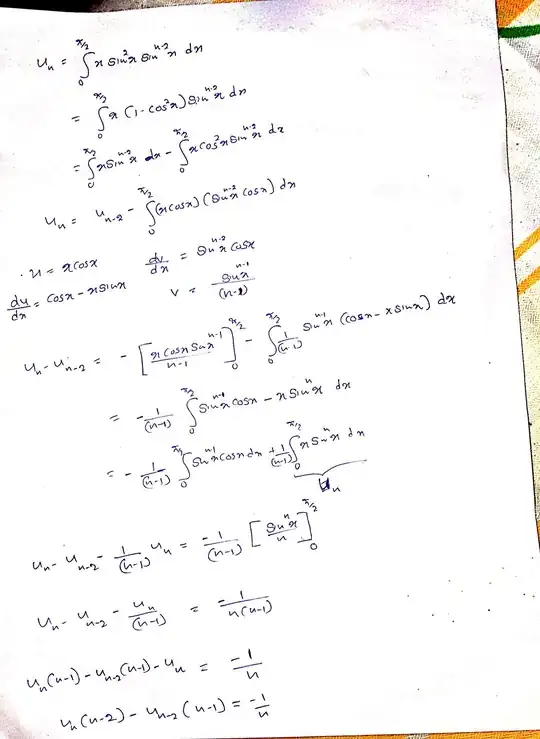 uₙ = ∫₀^{π/2} x sin²x sin^{n-2}x dx
= ∫₀^{π/2} x (1 - cos²x) sin^{n-2}x dx
= ∫₀^{π/2} x sin^{n-2}x dx - ∫₀^{π/2} x cos²x sin^{n-2}x dx
uₙ = uₙ₋₂ - ∫₀^{π/2} (x cosx) (sin^{n-2}x cosx) dx
u = x cosx dv/dx = sin^{n-2}x cosx
du/dx = cosx - x sinx v = sin^{n-1}x/(n-1)
uₙ - uₙ₋₂ = - [x cosx sin^{n-1}x/(n-1)]₀^{π/2} - ∫₀^{π/2} 1/(n-1) sin^{n-1}x (cosx - x sinx) dx
= -1/(n-1) ∫₀^{π/2} sin^{n-1}x cosx - x sinⁿx dx
= -1/(n-1) ∫₀^{π/2} sin^{n-1}x cosx dx + 1/(n-1) ∫₀^{π/2} x sinⁿx dx
uₙ
uₙ - uₙ₋₂ - 1/(n-1) uₙ = -1/(n-1) [sinⁿx/n]₀^{π/2}
uₙ - uₙ₋₂ - uₙ/(n-1) = -1/n(n-1)
uₙ(n-1) - uₙ₋₂(n-1) - uₙ = -1/n
uₙ(n-2) - uₙ₋₂(n-1) = -1/n